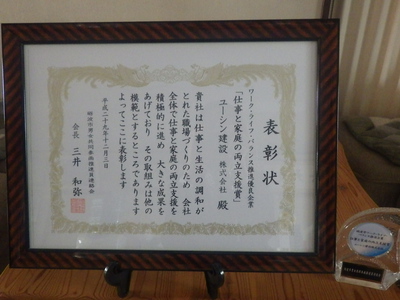 表彰状
ワーク・ライフ・バランス推進優良企業
「仕事と家庭の両立支援賞」
ユーシン建設 株式会社 殿
貴社は仕事と生活の調和が
とれた職場づくりのため 会社
全体で仕事と家庭の両立支援を
積極的に進め 大きな成果を
あげており その取組みは他の
模範とするところであります
よってここに表彰します
平成二十九年十二月三日
砺波市男女共同参画推進員連絡会
会長 三井 和弥